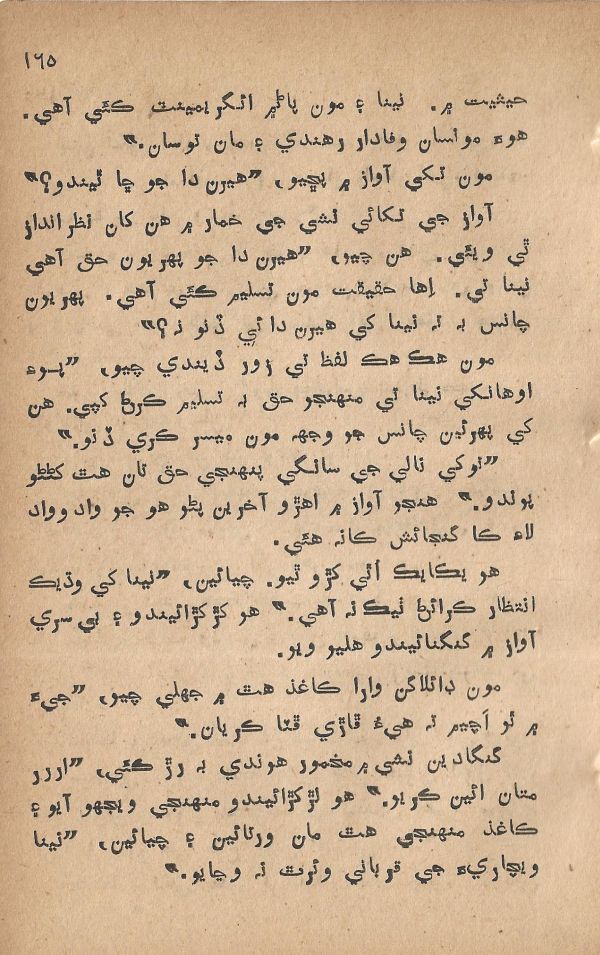 ١٦٥
حيثيت ۾. نينا ۽ مون پاڻ۾ ائگريمينٽ ڪئي آهي.
هوءَ موسان وفادار رهندي ۽ مان نوسان.”
مون تکي آواز ۾ پڇيو، ”هيرن دا جو ڇا ٿيندو؟“
آواز جي تکائي نشي جي خمار ۾ هن کان نظرانداز
ٿي ويئي. هن چيو، ”هيرن دا جو پهريون حق آهي
نينا تي. اها حقيقت مون تسليم ڪئي آهي. پهريون
چانس به ته نينا کي هيرن دا ئي ڏنو نه؟“
مون هڪ هڪ لفظ تي زور ڏيندي چيو، ”پوءِ
اوهانکي نينا تي منهنجو حق به تسليم ڪرڻ کپي. هن
کي پهرئين چانس جو وجهه مون ميسر ڪري ڏنو.“
”توکي نالي جي سانگي پنهنجي حق تان هٿ کڻڻو
پوندو.“ هنجو آواز ۾ اهڙو آخرين پڻو هو جو وادوواد
لاءِ ڪا گنجائش ڪانه هئي.
هو يڪايڪ اُٿي کڙو ٿيو. چيائين، ”نينا کي وڌيڪ
انتظار ڪرائڻ ٺيڪ نه آهي.“ هو کڙکڙائيندو ۽ بي سري
آواز ۾ گنگنائيندو هليو ويو.
مون ڊائلاگن وارا ڪاغذ هٿ ۾ جهلي چيو، ”جيءُ
۾ ٿو اَچيم ته هيءُ ڦاڙي ڦٽا ڪريان.“
گنگادين نشي ۾ مخمور هوندي به رڙ ڪئي، ”اررر
متان ائين ڪريو.“ هو لڙکڙائيندو منهنجي ويجهو آيو ۽
ڪاغذ منهنجي هٿ مان ورتائين ۽ چيائين، ”نينا
ويچاريءَ جي قرباني وئرٿ نه وڃايو.“